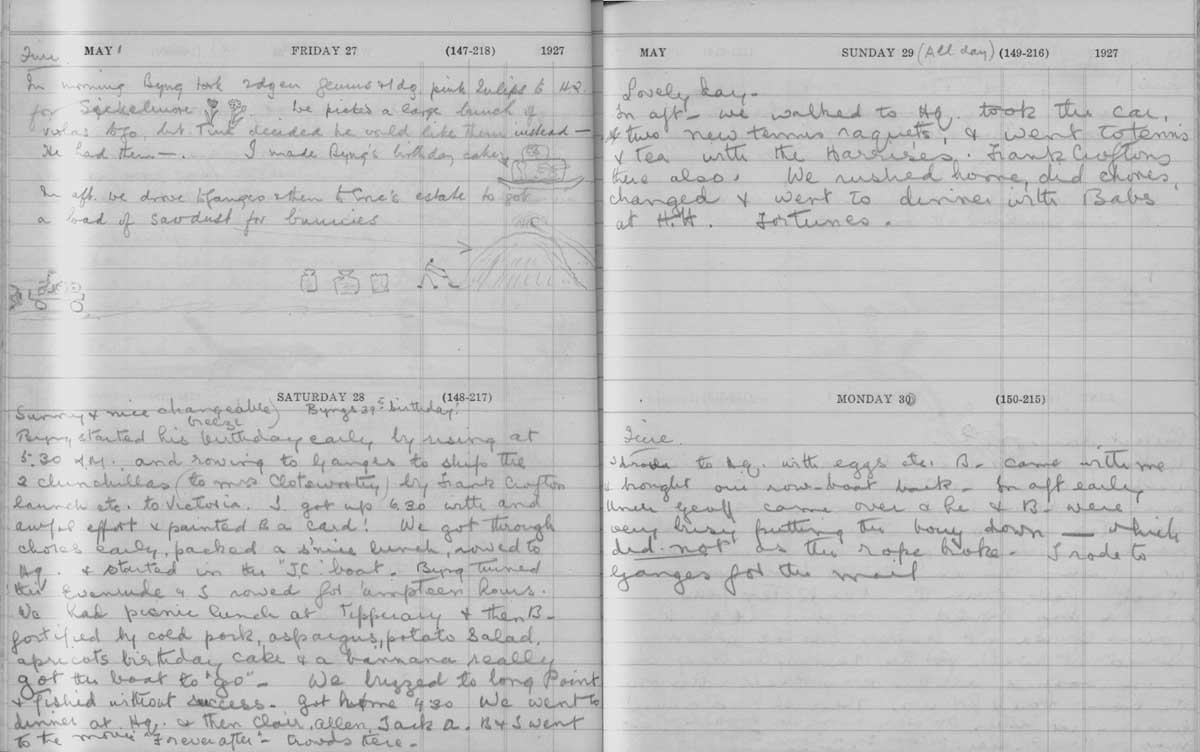 MAY FRIDAY 27 (147-218) 1927
Fine
In morning Byng took 2 dozen geums & 1 dz pink tulips to HQ
for We picked a large bunch of
violas to go, but decided he would like them instead —
He had them —. I made Byng's birthday cake
In aft. we drove to Ganges & then to estate to get
a load of sawdust for bunnies
SATURDAY 28 (148-217)
Sunny & nice changeable breeze) Byngs 39th birthday!
Byng started his birthday early by rising at
5.30 A.M. and rowing to Ganges to ship the
2 chinchillas (to Mrs Clotsworthy) by Frank Crofton
launch etc. to Victoria. I got up 6.30 with and
awful effort & painted B a card! We got through
chores early, packed a s'nice lunch, rowed to
Hq. & started in the "J.C." boat. Byng turned
the Evenrude & I rowed for 'umpteen hours.
We had picnic lunch at Tipperary & then B-
fortified by cold pork, aspargus, potato salad,
apricots birthday cake & a bannana really
got the boat to "go"- We buzzed to long Point
& fished without success. Got home 4.30 We went to
dinner at Hq. & then Clair, Allen, Jack A. B & I went
to the movie "Forever after"- Crowds there.
MAY SUNDAY 29 (All day) (149-216) 1927
Lovely day-
In aft- we walked to Hq. took the car,
& two new tennis raquets, & went to tennis
& tea with the Harrises. Frank Croftons
there also. We rushed home, did chores,
changed & went to dinner with Babs
at H.H. Fortunes.
MONDAY 30 (150-215)
Fine.
to Hq. with eggs etc. B- came with me
& brought our row-boat back- In aft early
Geoff came over & he & B- were
very busy putting the bouy down — which
did not as the rope broke- I rode to
Ganges for the mail